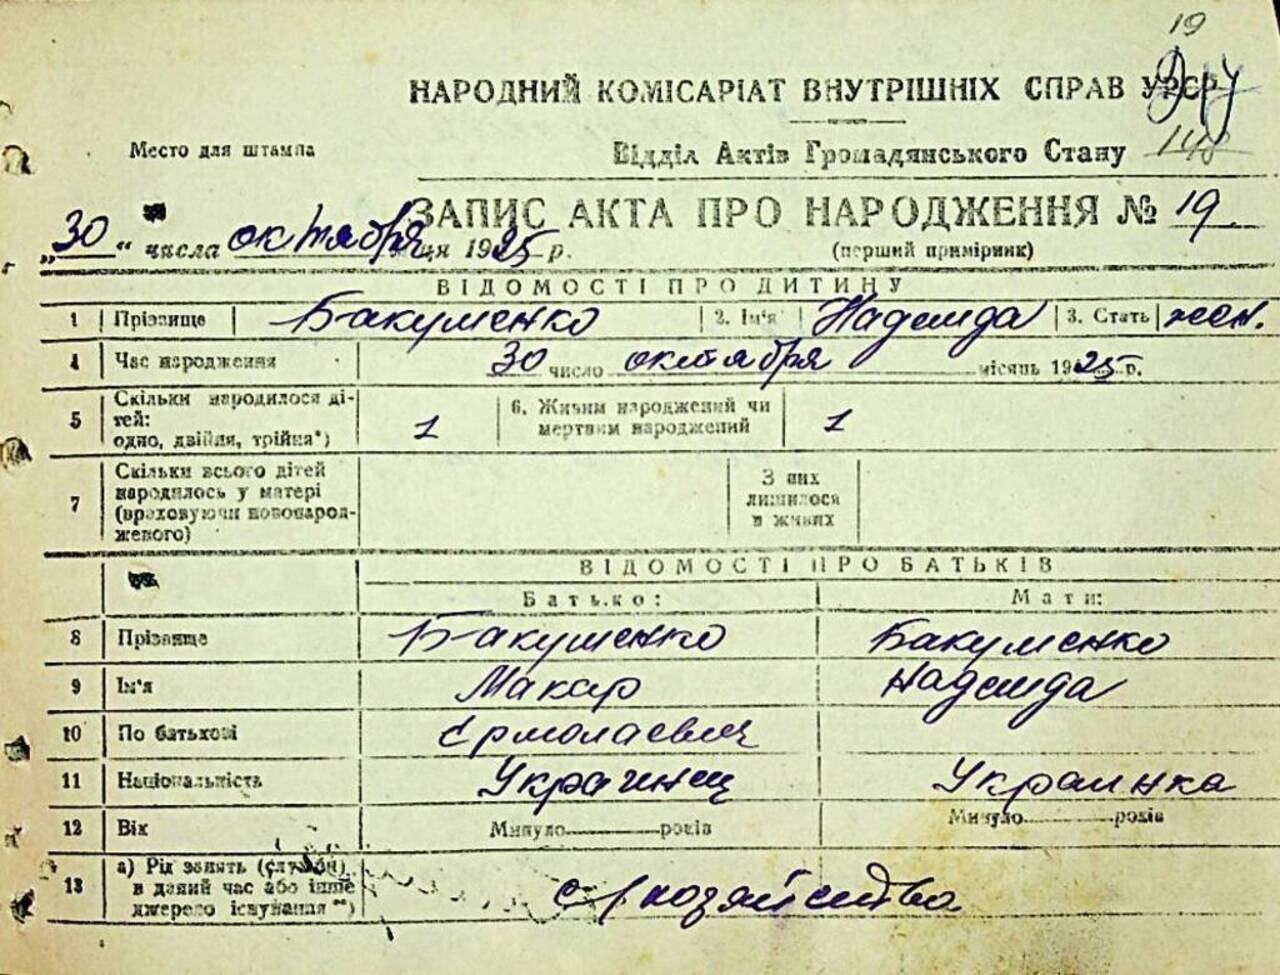 19
НАРОДНИЙ КОМІСАРІАТ ВНУТРІШНІХ СПРАВ УРСР
148
Место для штампа
Відділ Актів Громадянського Стану
ЗАПИС АКТА ПРО НАРОДЖЕННЯ № 19
„30“ числа октября ця 1925 р.
(перший примірник)
ВІДОМОСТІ ПРО ДИТИНУ
1 Прізвище Бакуменко 2. Ім'я Надежда 3. Стать жен.
4 Час народження 30 число октября місяць 1925 р.
5 Скільки народилося ді-
тей:
одно, двійня, трійня*) 1
6. Живим народжений чи
мертвим народжений 1
7 Скільки всього дітей
народилось у матері
(враховуючи новонарод-
женого)
З них
лишилося
в живих
ВІДОМОСТІ ПРО БАТЬКІВ
Батько: Мати:
8 Прізвище Бакуменко Бакуменко
9 Ім'я Макар Надежда
10 По батькові Ермолаевич
11 Національність Украинец Украинка
12 Вік Минуло років Минуло років
13 а) Рід занять (служби)
в даний час або інше
джерело існування**) с/хозяйство